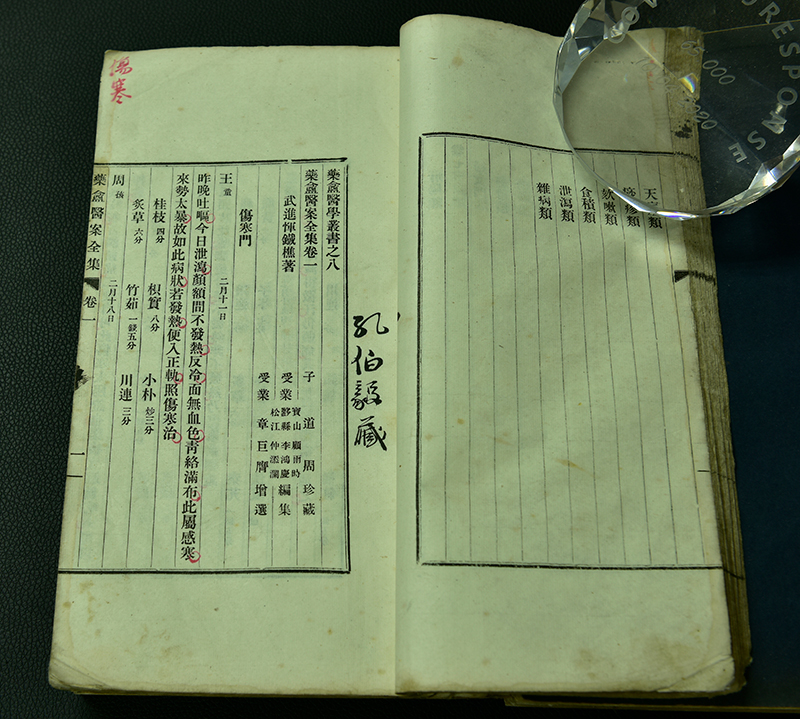 欬嗽類
食積類
泄瀉類
雜病類
孔伯毅藏
藥盦醫學叢書之八
藥盦醫案全集卷一
武進惲鐵樵著
子 道周珍藏
受業 寶山顧雨時 黟縣李鴻慶 松江仲添瀾 編集
受業 章巨膺增選
傷寒門
王童 二月十一日
昨晚吐嘔今日泄瀉顏額間不發熱反冷面無血色靑絡滿布此屬感寒
來勢太暴故如此病狀若發熱便入正軌照傷寒治
桂枝四分 枳實八分 小朴炒三分
炙草六分 竹茹一錢五分 川連三分
周孩 二月十八日
藥盦醫案全集 卷一 一
傷寒